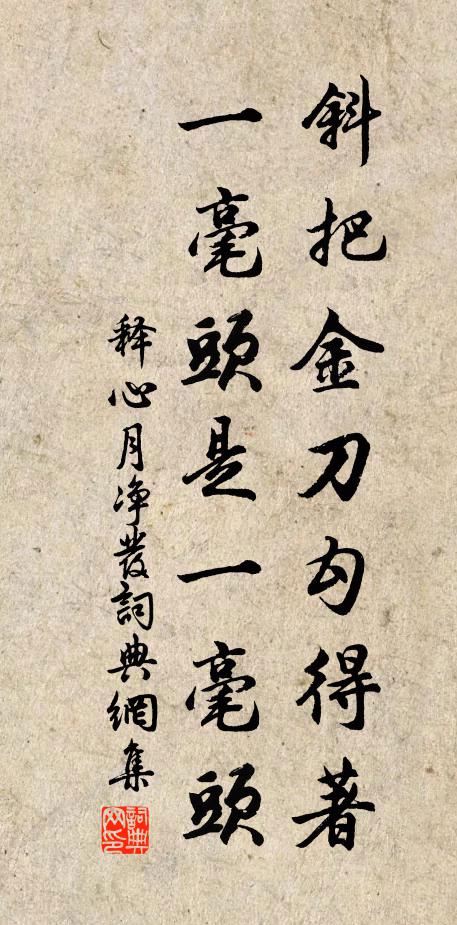 斜把金刀勾得著
一毫頭是一毫頭
释心月净發詞典網集
詞典
网印